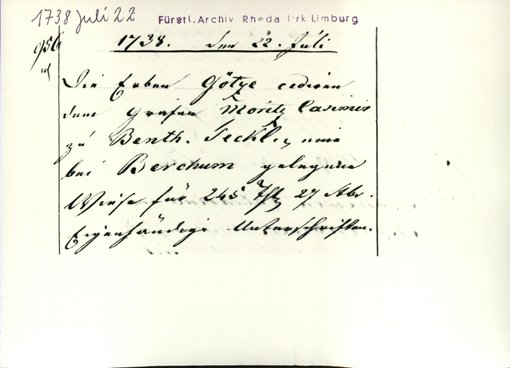 1738 Juli 22
Fürstl. Archiv Rheda Urk Limburg
956
1738. den 22. Juli
Die Erben Götze cediren
dem Grafen Moritz Casimir
zu Benth. Teckl. eine
bei Berchum gelegene
Wiese für 245 Thlr 27 Stbr.
Eigenhändige Unterschriften.